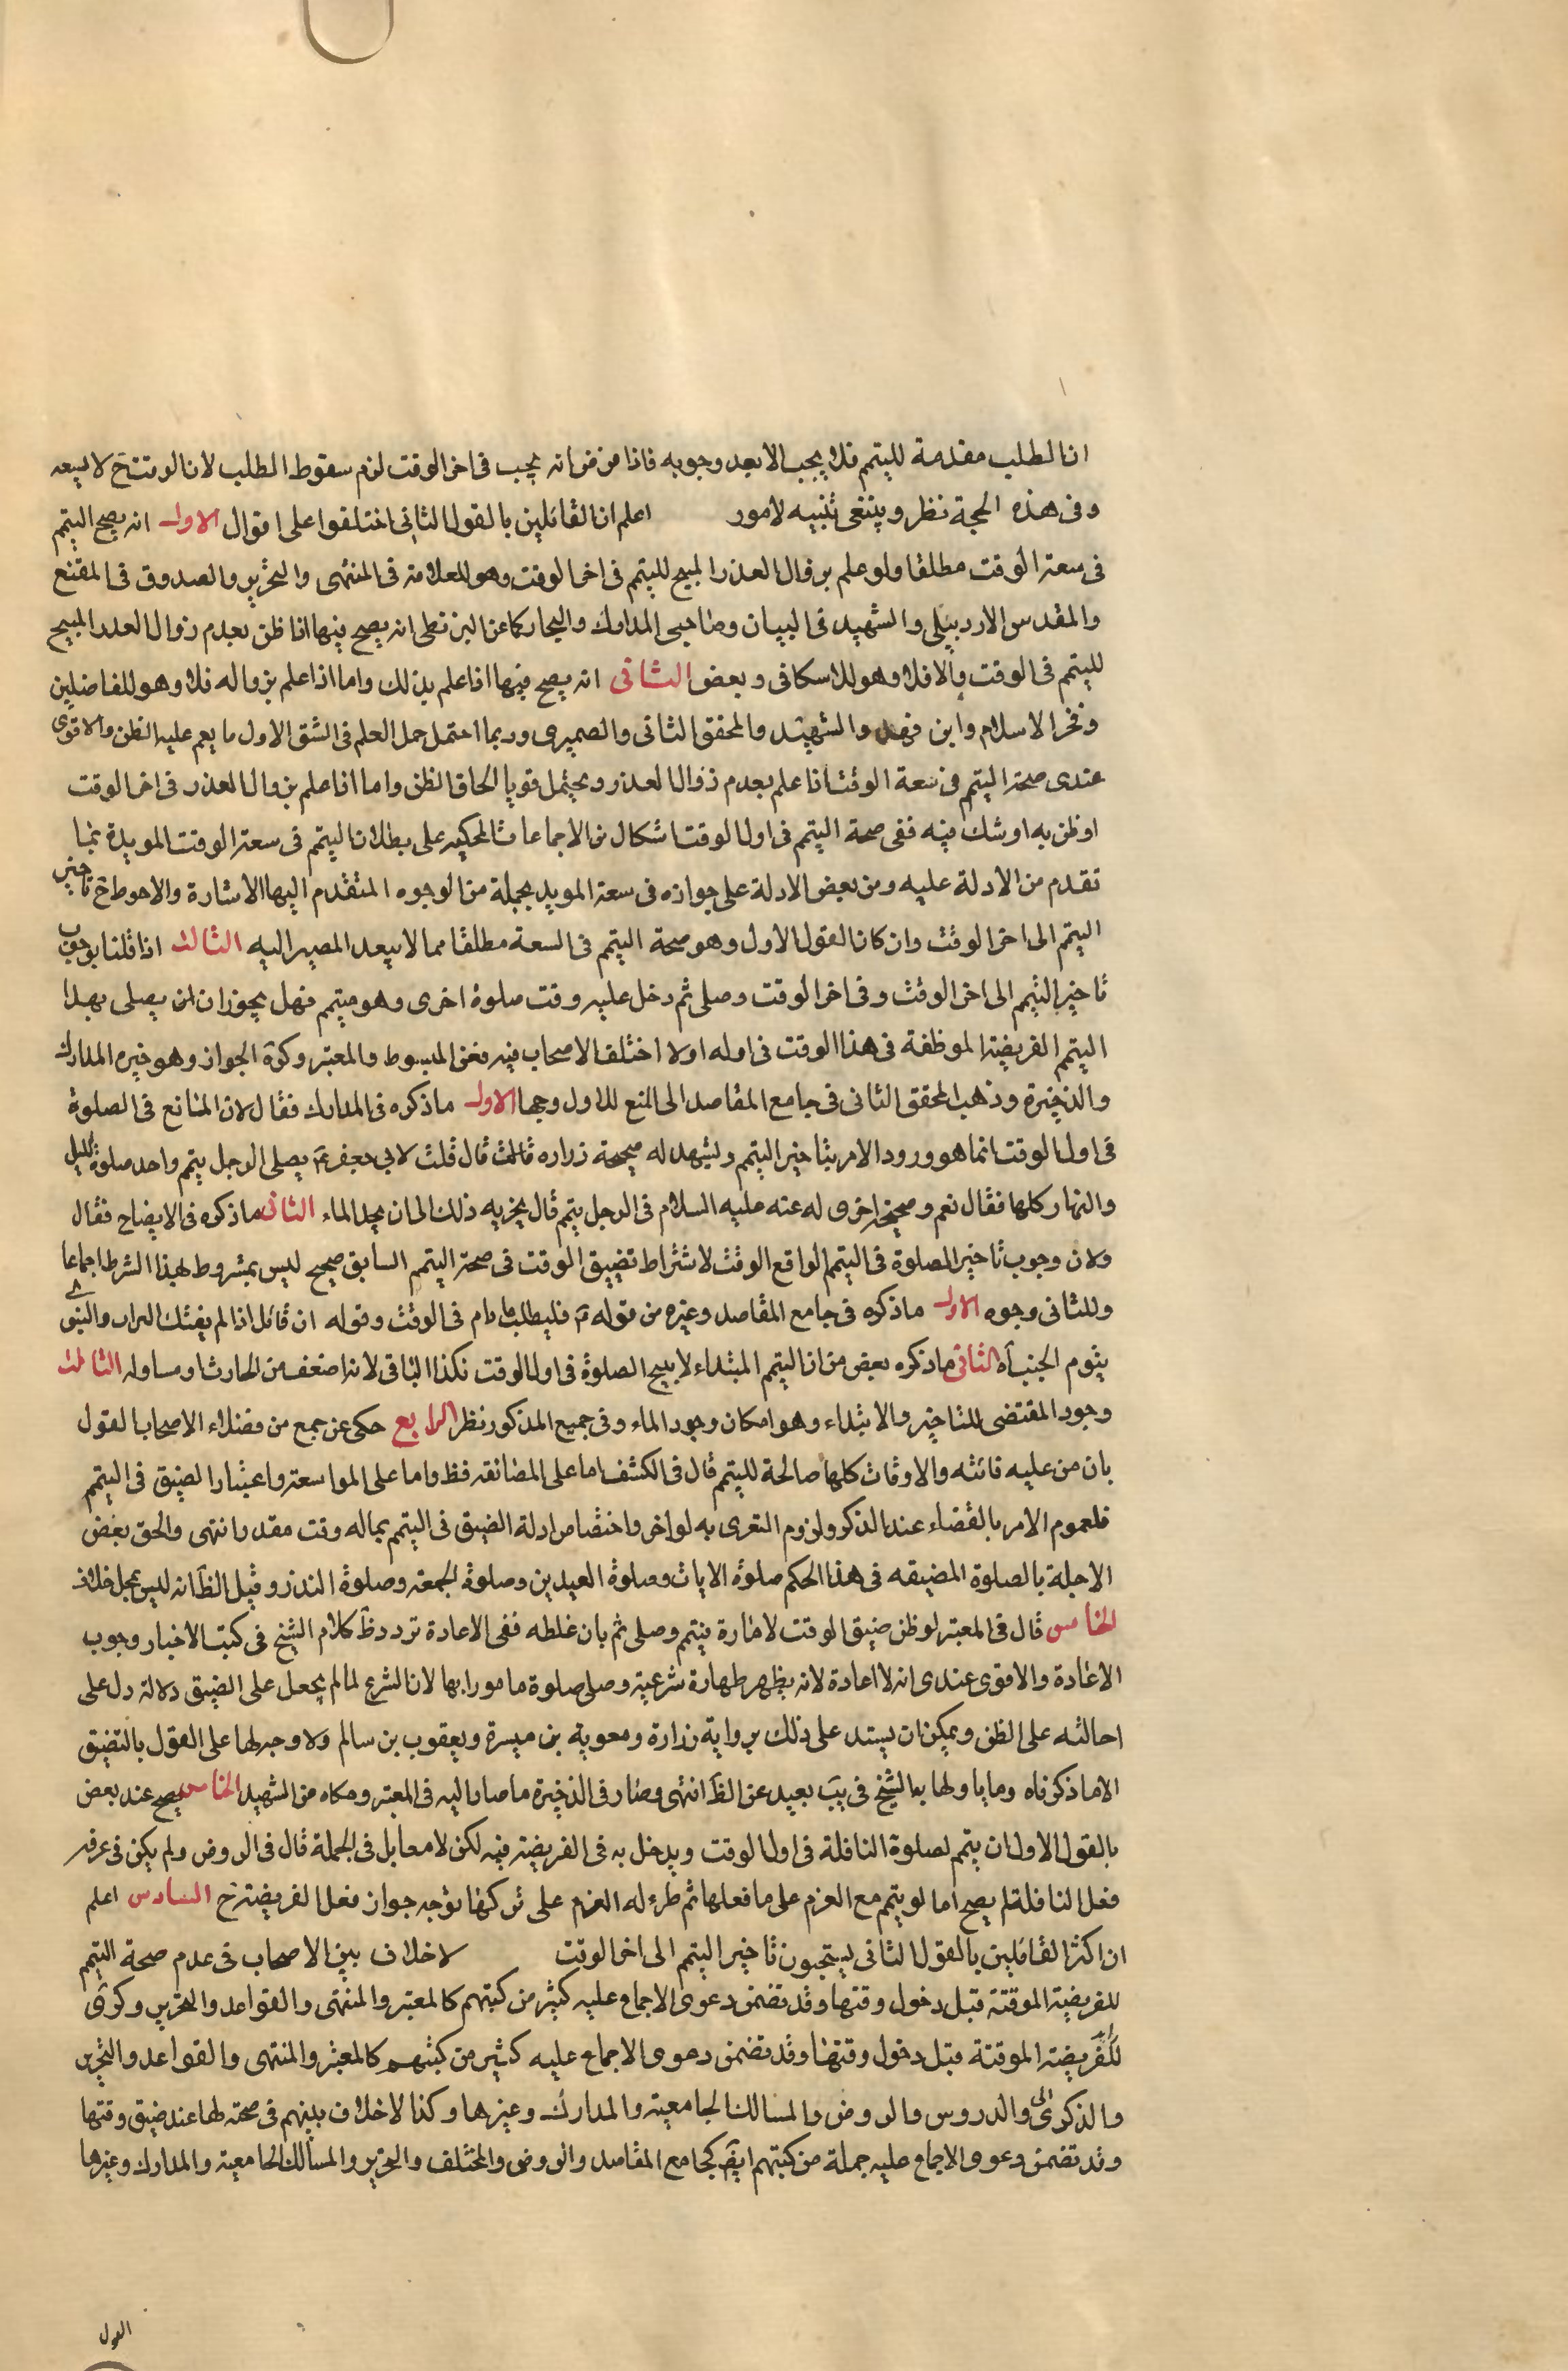 ان الطلب مقدمة للتيمم فلا يجب الا بعد وجوبه فاذا فرض انه يجب فى اخر الوقت لزم سقوط الطلب لان الوقت ح لا يسعه
وفى هذه الحجة نظر وينبغى تنبيه لامور اعلم ان القائلين بالقول الثانى اختلفوا على اقوال الاول انه يصح التيمم
فى سعة الوقت مطلقا ولو علم بزوال العذر المبيح للتيمم فى اخر الوقت وهو للعلامة فى المنتهى والتحرير والصدوق فى المقنع
والمقدس الاردبيلى والشهيد فى البيان وصاحبى المدارك والبحار كما عن البزنطى انه يصح فيها اذا ظن بعدم زوال العذر المبيح
للتيمم فى الوقت والا فلا وهو للاسكافى وبعض الثانى انه يصح فيها اذا علم بذلك واما اذا علم بزواله فلا وهو للفاضلين
وفخر الاسلام وابن فهد والشهيد والمحقق الثانى والصميرى وربما احتمل حمل العلم فى الشق الاول ما يعم عليه الظن والاقوى
عندى صحة التيمم فى سعة الوقت اذا علم بعدم زوال العذر ويحتمل قويا الحاق الظن واما اذا علم بزوال العذر فى اخر الوقت
او ظن به او شك فيه ففى صحة التيمم فى اول الوقت اشكال من الاجماعات المحكيه على بطلان التيمم فى سعة الوقت المويدة بما
تقدم من الادلة عليه ومن بعض الادلة على جوازه فى سعة المويد بجملة من الوجوه المتقدم اليها الاشارة والاحوط ح تاخير
التيمم الى اخر الوقت وان كان القول الاول وهو صحة التيمم فى السعة مطلقا مما لا يبعد المصير اليه الثالث اذا قلنا بوجوب
تاخير التيمم الى اخر الوقت وفى اخر الوقت وصلى ثم دخل عليه وقت صلوة اخرى وهو متيمم فهل يجوز ان يصلى بهذا
التيمم الفريضة الموظفة فى هذا الوقت فى اوله اولا اختلف الاصحاب فيه فعن المبسوط والمعتبر وكرة الجواز وهو خيره المدارك
والذخيرة وذهب المحقق الثانى فى جامع المقاصد الى المنع للاول وجها الاول ماذكره فى المدارك فقال لان المانع فى الصلوة
فى اول الوقت انما هو ورود الامر بتاخير التيمم ويشهد له صحيحة زراره قال قلت لابى جعفر ع يصلى الرجل بتيمم واحد صلوة الليل
والنهار كلها فقال نعم وصحيحة اخرى له عنه عليه السلام فى الرجل يتيمم قال يجزيه ذلك الى ان يجد الماء الثانى ماذكره فى الايضاح فقال
ولان وجوب تاخير الصلوة فى التيمم الواقع الوقت لاشتراط تضييق الوقت فى صحة التيمم السابق صحيح ليس بمشروط بهذا الشرط اجماعا
وللثانى وجوه الاول ماذكره فى جامع المقاصد وغيره من قوله ع فليطلب ما دام فى الوقت وقوله
الثانى ماذكره بعض من ان التيمم المبتداء لا يبيح الصلوة فى اول الوقت فكذا الباقى لانه اضعف من الحادث او مساو له الثالث
وجود المقتضى للتاخير والابتداء وهو امكان وجود الماء وفى جميع المذكور نظر الرابع حكى عن جمع من فضلاء الاصحاب القول
بان من عليه فائته والاوقات كلها صالحة للتيمم قال فى الكشف اما على المضائقه فظ واما على المواسعة واعتبار الضيق فى التيمم
فلعموم الامر بالقضاء عند الذكر ولزوم التعرى به لو اخر واختصاص ادلة الضيق فى التيمم بماله وقت مقدر انتهى والحق بعض
الاجلة بالصلوة المضيقه فى هذا الحكم صلوة الايات وصلوة العيدين وصلوة الجمعة وصلوة النذر وقيل الظ انه ليس بمحل خلاف
الخامس قال فى المعتبر لو ظن ضيق الوقت لامارة فتيمم وصلى ثم بان غلطه ففى الاعادة تردد ظ كلام الشيخ فى كتب الاخبار وجوب
الاعادة والاقوى عندى انه لا اعادة لانه يظهر طهارة شرعية وصلى صلوة مامورا بها لان الشرع لما لم يجعل على الضيق دلالة دل على
احالته على الظن ويمكن ان يستدل على ذلك برواية زرارة ومعوية بن ميسرة ويعقوب بن سالم ولا وجه لها على القول بالتضيق
الا ما ذكرناه وما ياولها به الشيخ فى يب بعيد عن الظ انتهى وصار فى الذخيرة ما صار اليه فى المعتبر وحكاه من الشهيد الخامس يصح عند بعض
بالقول الاول ان يتيمم لصلوة النافلة فى اول الوقت ويدخل به فى الفريضة فيه لكن لا معابل فى الجملة قال فى الروض ولم يكن فى عرفه
فعل النافلة لم يصح اما لو تيمم مع العزم على ما فعلها ثم طرء له العزم على تركها توجه جواز فعل الفريضة ح السادس اعلم
ان اكثر القائلين بالقول الثانى يستحبون تاخير التيمم الى اخر الوقت لا خلاف بين الاصحاب فى عدم صحة التيمم
للفريضة الموقتة قبل دخول وقتها وقد تضمن دعوى الاجماع عليه كثير من كتبهم كالمعتبر والمنتهى والقواعد والتحرير وكرى
للفريضة الموقتة قبل دخول وقتها وقد تضمن دعوى الاجماع عليه كثير من كتبهم كالمعتبر والمنتهى والقواعد والتحرير
والذكرى والدروس والروض والمسالك الجامعية والمدارك وغيرها وكذا لا خلاف بينهم فى صحته لها عند ضيق وقتها
وقد تضمن دعوى الاجماع عليه جملة من كتبهم ايض كجامع المقاصد والروض والمختلف والتحرير والمسالك الجامعية والمدارك وغيرها